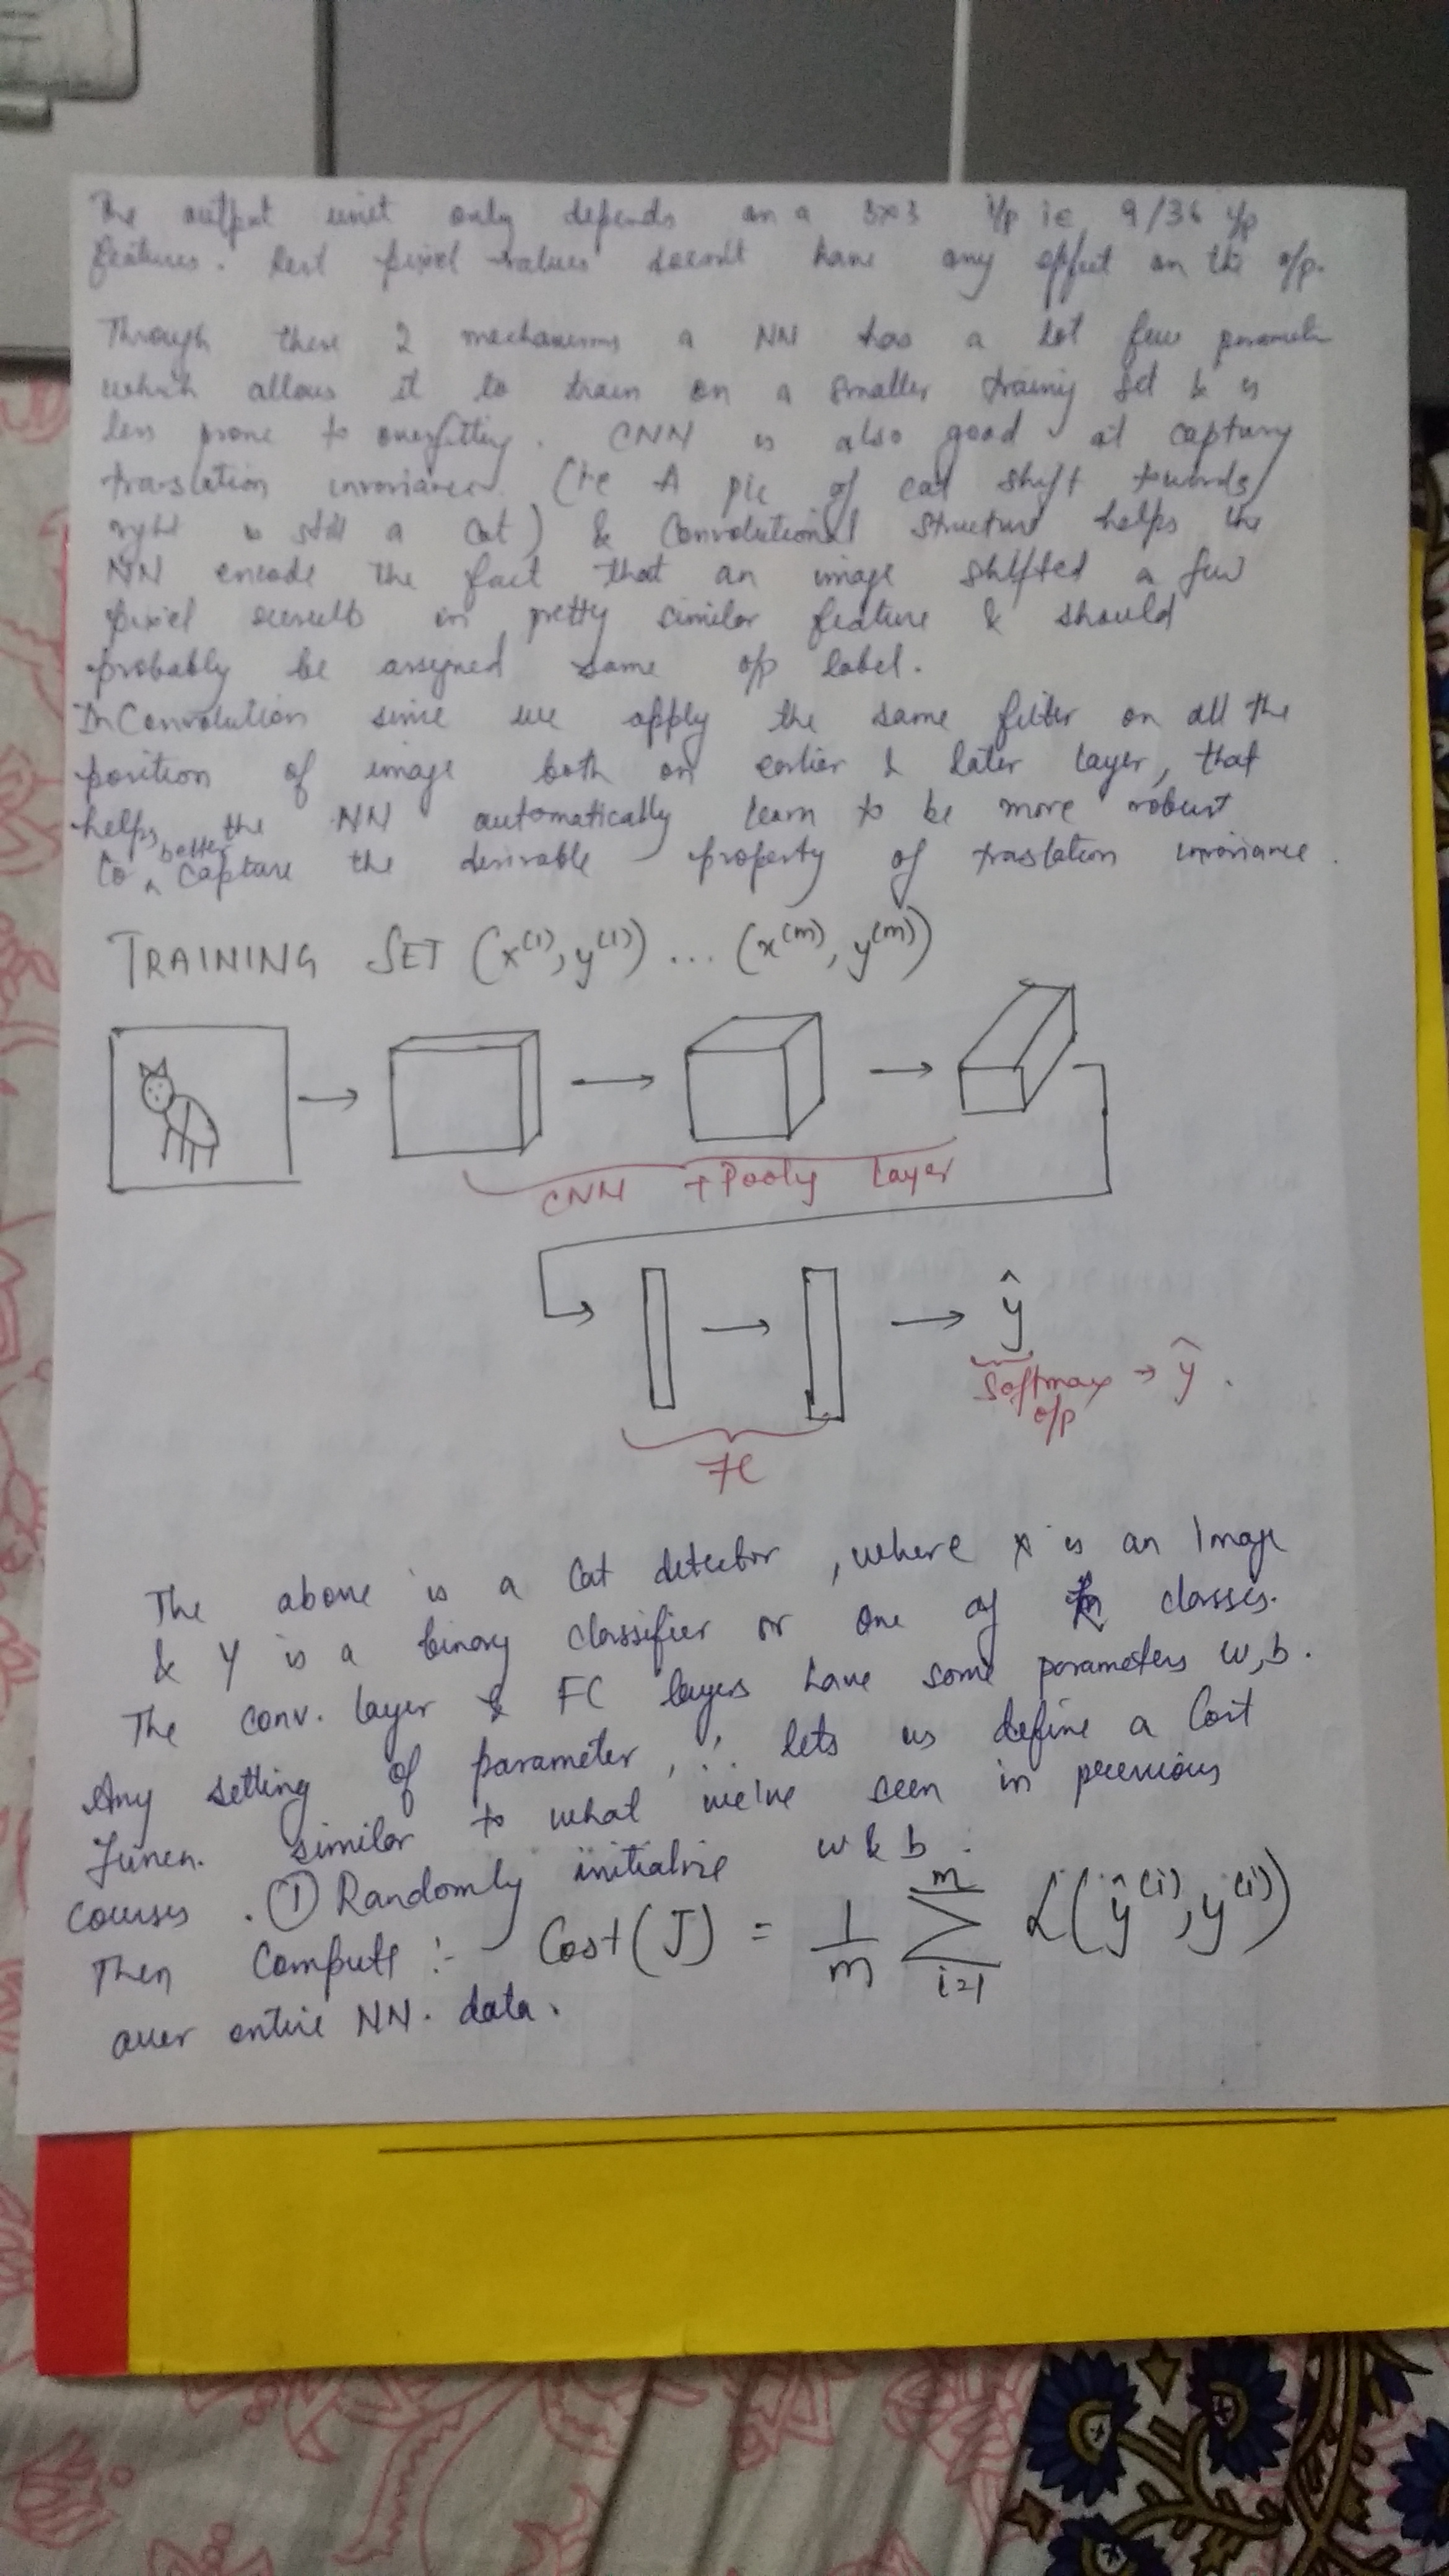 The output unit only depends on a 3x3 i/p ie 9/36 i/p
features. Rest pixel values doesn't have any effect on the o/p.
Through these 2 mechanisms a NN has a lot few
which allows it to train on a smaller training set & is
less prone to overfitting. CNN is also good at
translation invariance (ie A pic of cat shift towards
right is still a cat) & Convolutional structure helps the
NN encode the fact that an image shifted a few
pixel results in pretty similar feature & should
probably be assigned same o/p label.
In Convolution since we apply the same filter on all the
position of image both on earlier & later layer, that
helps the NN automatically learn to be more robust
to better capture the desirable property of traslation invariance.
TRAINING SET (x⁽¹⁾, y⁽¹⁾) ... (x⁽ᵐ⁾, y⁽ᵐ⁾)
CNN + Layer
ŷ
Softmax → ŷ.
o/p
FC
The above is a Cat detector, where x is an Image
& Y is a binary classifier or one of classes.
The conv. layer & FC layers have some parameters w,b.
Any setting of parameter, ∴ lets us define a Cost
Funcn. similar to what we've seen in previous
courses. ① Randomly initialize w & b.
Then Compute :- Cost(J) = 1/m Σ_{i=1}^{m} ℒ(ŷ⁽ⁱ⁾, y⁽ⁱ⁾)
over entire NN. data.